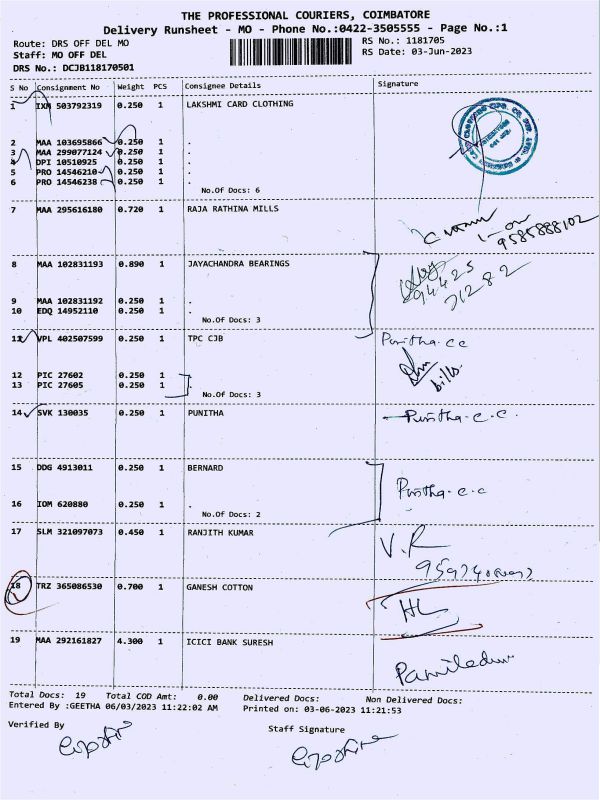 THE PROFESSIONAL COURIERS, COIMBATORE
Delivery Runsheet - MO - Phone No.:0422-3505555 - Page No.:1
Route: DRS OFF DEL MO
RS No.: 1181705
Staff: MO OFF DEL
RS Date: 03-Jun-2023
DRS No.: DCJB118170501
S No Consignment No Weight PCS Consignee Details Signature
1 IXM 503792319 0.250 1 LAKSHMI CARD CLOTHING
2 MAA 103695866 0.250 1 .
3 MAA 299077124 0.250 1 .
4 DPI 10510925 0.250 1 .
5 PRO 14546210 0.250 1 .
6 PRO 14546238 0.250 1 .
No.Of Docs: 6
7 MAA 295616180 0.720 1 RAJA RATHINA MILLS
9585888102
8 MAA 102831193 0.890 1 JAYACHANDRA BEARINGS
94425
71282
9 MAA 102831192 0.250 1 .
10 EDQ 14952110 0.250 1 .
No.Of Docs: 3
11 VPL 402507599 0.250 1 TPC CJB Punitha.cc
12 PIC 27602 0.250 1 .
bills
13 PIC 27605 0.250 1 .
No.Of Docs: 3
14 SVK 130035 0.250 1 PUNITHA Punitha.c.c.
15 DDG 4913011 0.250 1 BERNARD
Punitha.c.c
16 IOM 620880 0.250 1 .
No.Of Docs: 2
17 SLM 321097073 0.450 1 RANJITH KUMAR V.R
18 TRZ 365086530 0.700 1 GANESH COTTON
19 MAA 292161827 4.300 1 ICICI BANK SURESH
Total Docs: 19 Total COD Amt: 0.00 Delivered Docs: Non Delivered Docs:
Entered By :GEETHA 06/03/2023 11:22:02 AM Printed on: 03-06-2023 11:21:53
Verified By Staff Signature